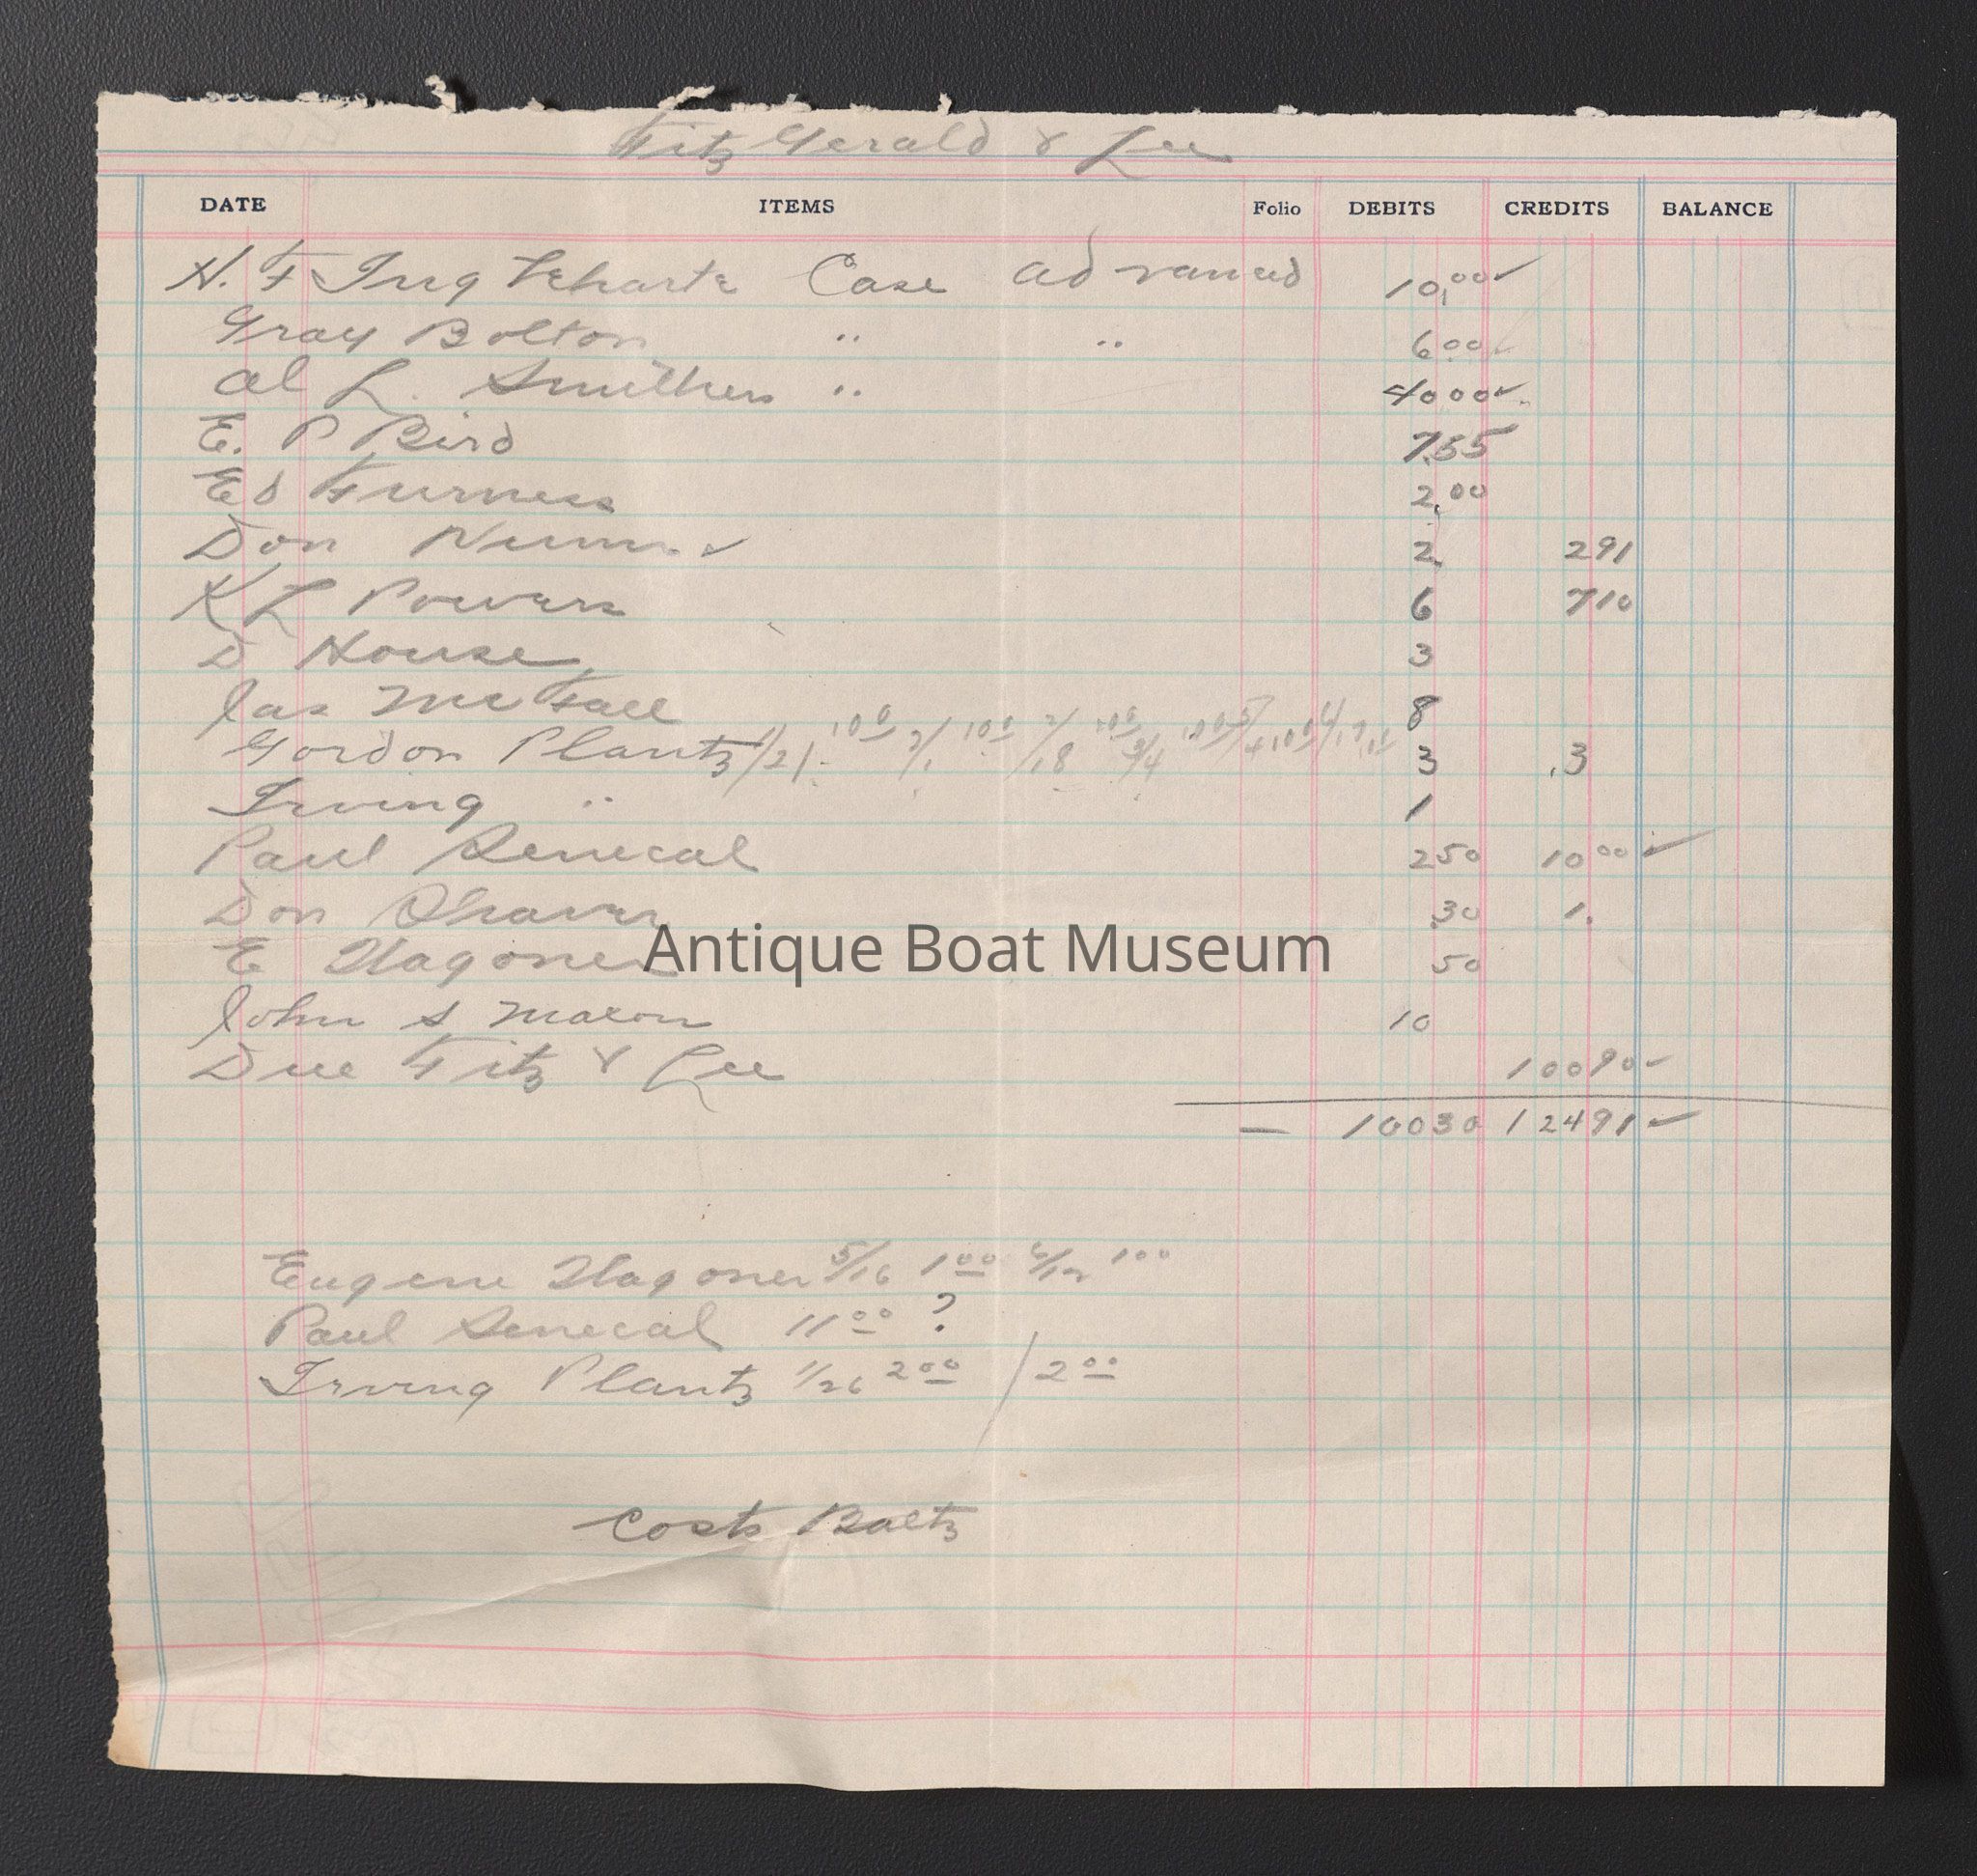 Fitz Gerald & Lee
DATE ITEMS Folio DEBITS CREDITS BALANCE
H. F Case advanced 10,00 ✓
Gray Bolton " " 6 00 ✓
Al L. Smithers " 40 00 ✓
E. P Bird 7.55
Ed Furness 2.00
Don ✓ 2 2 91
K L Powers 6 7 10
D House 3
Jas McFall 8
Gordon Plantz 1/21 1 00 2/1 1 00 2/18 1 00 3/4 1 00 3 .3
Irving " 1
Paul Senecal 2 50 10 00 ✓
Don Shaver .30 1.
E Wagoner 50
John S Maxon 10
Due Fitz & Lee 100 90 ✓
— 100 30 124 91 ✓
Eugene Wagoner 5/16 1 00 6/12 1 00
Paul Senecal 11 00 ?
Irving Plantz 1/26 2 00 / 2 00
Costs Baltz
Antique Boat Museum